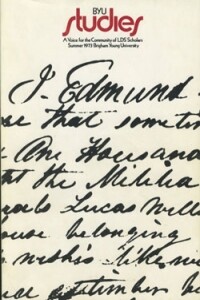 BYU
studies
A Voice for the Community of LDS Scholars
Summer 1973 Brigham Young University
I. Edmund
se that sometim
One Thousand
at the Militia
Lucas Will
ouse belonging
wish's like